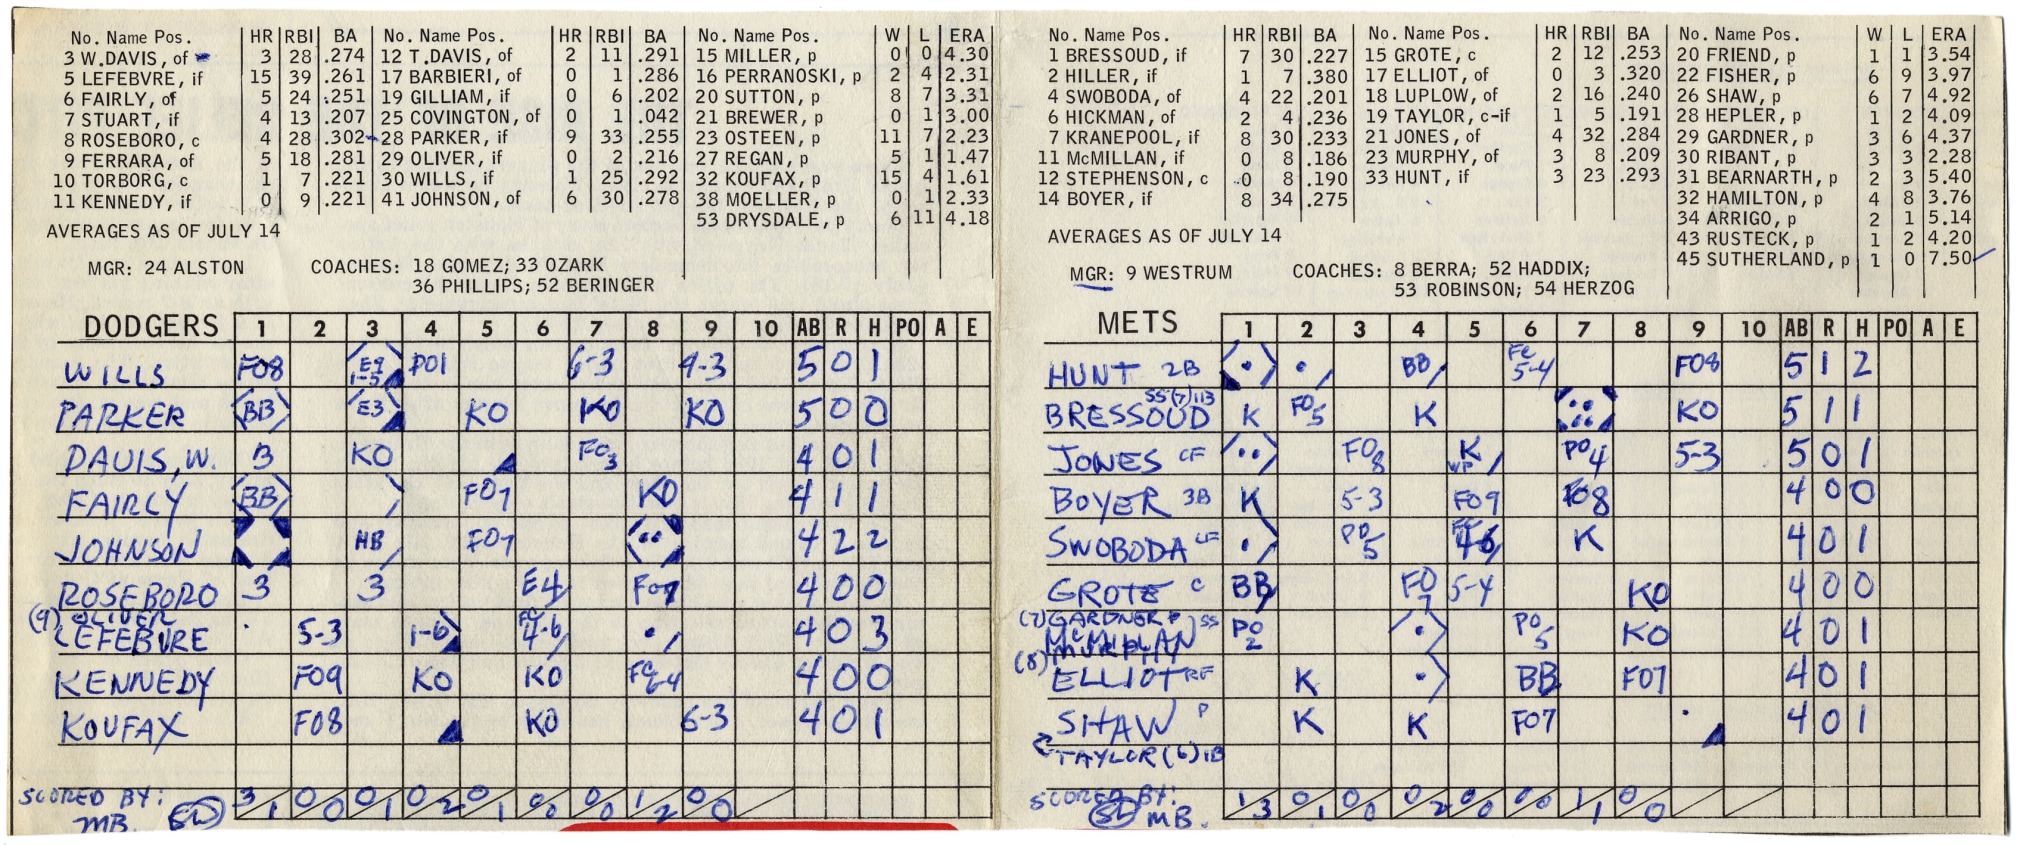 No. Name Pos. HR RBI BA No. Name Pos. HR RBI BA No. Name Pos. W L ERA
3 W.DAVIS, of 3 28 .274 12 T.DAVIS, of 2 11 .291 15 MILLER, p 0 0 4.30
5 LEFEBVRE, if 15 39 .261 17 BARBIERI, of 0 1 .286 16 PERRANOSKI, p 2 4 2.31
6 FAIRLY, of 5 24 .251 19 GILLIAM, if 0 6 .202 20 SUTTON, p 8 7 3.31
7 STUART, if 4 13 .207 25 COVINGTON, of 0 1 .042 21 BREWER, p 0 1 3.00
8 ROSEBORO, c 4 28 .302 28 PARKER, if 9 33 .255 23 OSTEEN, p 11 7 2.23
9 FERRARA, of 5 18 .281 29 OLIVER, if 0 2 .216 27 REGAN, p 5 1 1.47
10 TORBORG, c 1 7 .221 30 WILLS, if 1 25 .292 32 KOUFAX, p 15 4 1.61
11 KENNEDY, if 0 9 .221 41 JOHNSON, of 6 30 .278 38 MOELLER, p 0 1 2.33
53 DRYSDALE, p 6 11 4.18
AVERAGES AS OF JULY 14
MGR: 24 ALSTON COACHES: 18 GOMEZ; 33 OZARK
36 PHILLIPS; 52 BERINGER
DODGERS 1 2 3 4 5 6 7 8 9 10 AB R H PO A E
WILLS FO8 E4 1-5 PO1 6-3 4-3 5 0 1
PARKER BB E3 KO KO KO 5 0 0
DAVIS, W. 3 KO FO3 4 0 1
FAIRLY BB FO7 KO 4 1 1
JOHNSON HB FO7 4 2 2
ROSEBORO 3 3 E4 FO7 4 0 0
(9) OLIVER
LEFEBVRE 5-3 1-6 FC 4-6 4 0 3
KENNEDY FO9 KO KO FC 6-4 4 0 0
KOUFAX FO8 KO 6-3 4 0 1
SCORED BY: 3/1 0/0 0/1 0/2 0/1 0/0 0/0 1/2 0/0
MB.
No. Name Pos. HR RBI BA No. Name Pos. HR RBI BA No. Name Pos. W L ERA
1 BRESSOUD, if 7 30 .227 15 GROTE, c 2 12 .253 20 FRIEND, p 1 1 3.54
2 HILLER, if 1 7 .380 17 ELLIOT, of 0 3 .320 22 FISHER, p 6 9 3.97
4 SWOBODA, of 4 22 .201 18 LUPLOW, of 2 16 .240 26 SHAW, p 6 7 4.92
6 HICKMAN, of 2 4 .236 19 TAYLOR, c-if 1 5 .191 28 HEPLER, p 1 2 4.09
7 KRANEPOOL, if 8 30 .233 21 JONES, of 4 32 .284 29 GARDNER, p 3 6 4.37
11 McMILLAN, if 0 8 .186 23 MURPHY, of 3 8 .209 30 RIBANT, p 3 3 2.28
12 STEPHENSON, c 0 8 .190 33 HUNT, if 3 23 .293 31 BEARNARTH, p 2 3 5.40
14 BOYER, if 8 34 .275 32 HAMILTON, p 4 8 3.76
34 ARRIGO, p 2 1 5.14
AVERAGES AS OF JULY 14 43 RUSTECK, p 1 2 4.20
45 SUTHERLAND, p 1 0 7.50
MGR: 9 WESTRUM COACHES: 8 BERRA; 52 HADDIX;
53 ROBINSON; 54 HERZOG
METS 1 2 3 4 5 6 7 8 9 10 AB R H PO A E
HUNT 2B BB FC 5-4 FO8 5 1 2
SS (7) 1B
BRESSOUD K FO5 K KO 5 1 1
JONES CF FO8 K WP PO4 5-3 5 0 1
BOYER 3B K 5-3 FO9 FO8 4 0 0
SWOBODA LF PO5 FC 46 K 4 0 1
GROTE C BB FO7 5-4 KO 4 0 0
(7) GARDNER P
McMILLAN SS PO2 PO5 KO 4 0 1
(8) MURPHY
ELLIOT RF K BB FO7 4 0 1
SHAW P K K FO7 4 0 1
TAYLOR (6) 1B
SCORED BY: 1/3 0/1 0/0 0/2 0/0 0/0 1/1 0/0
MB.